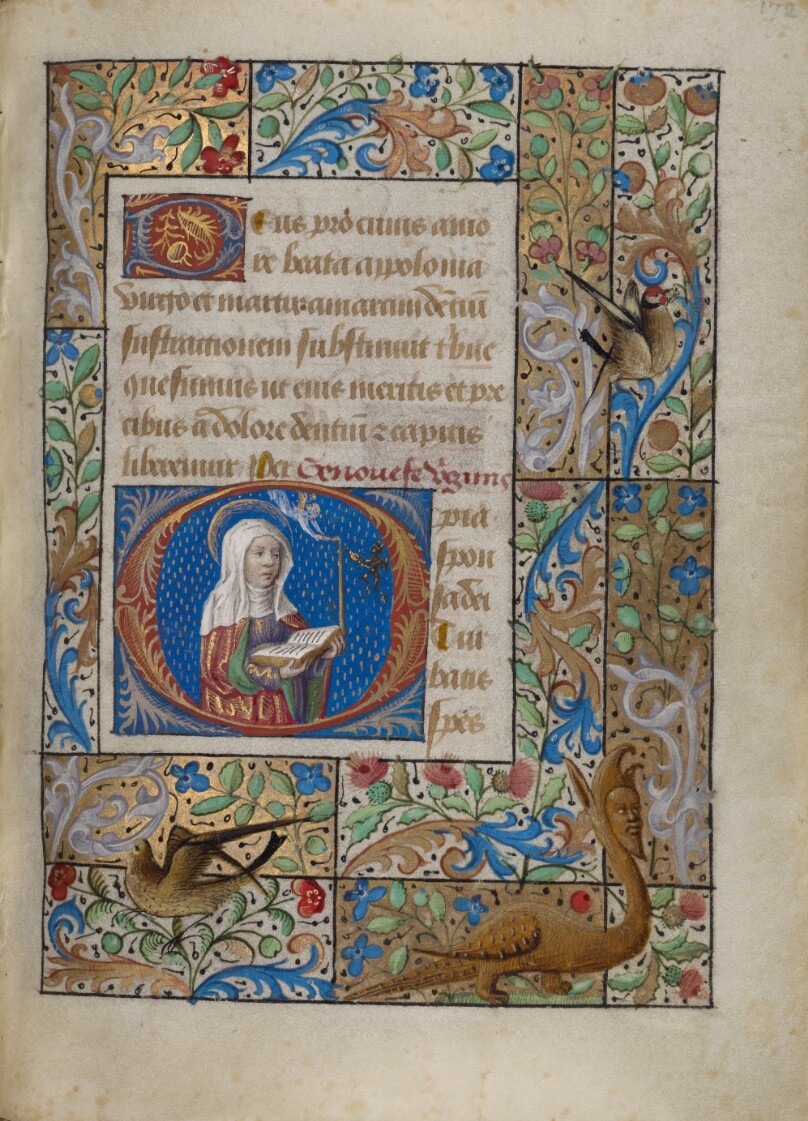 172
Deus pro cuius amo
re beata appolonia
virgo et martir amaram dentiū
sustractionem substinuit tbue
quesumus ut eius meritis et pre
cibus a dolore dentiū z capitis
liberemur Per Genouefe virginis
O pia
spon
sa dei
Tu
batis
spes